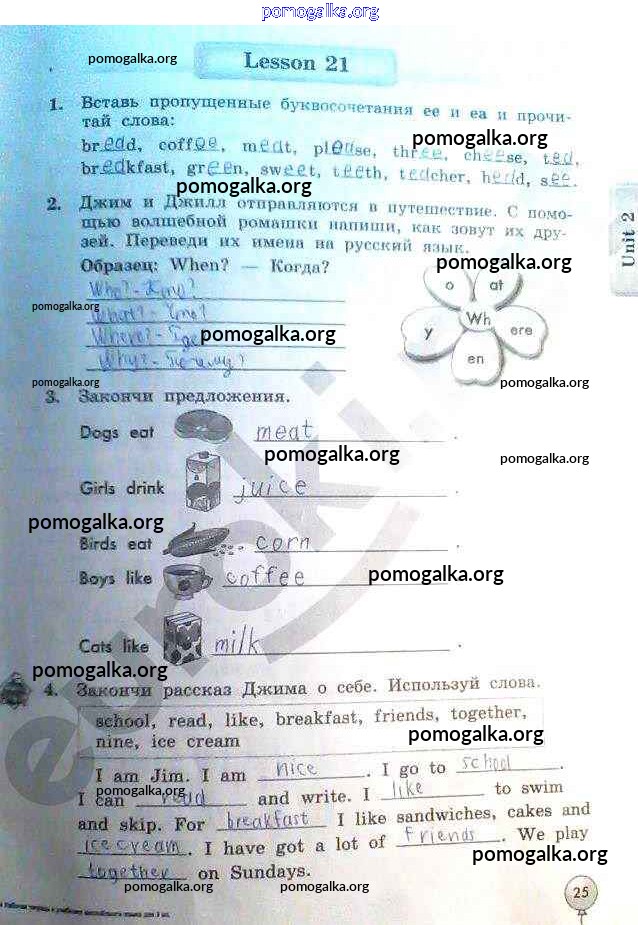 pomogalka.org
pomogalka.org
Lesson 21
1. Вставь пропущенные буквосочетания ее и еа и прочи-
тай слова:
pomogalka.org
bread, coffee, meat, please, three, cheese, tea,
breakfast, green, sweet, teeth, teacher, head, see.
pomogalka.org
2. Джим и Джилл отправляются в путешествие. С помо-
щью волшебной ромашки напиши, как зовут их дру-
зей. Переведи их имена на русский язык.
Unit 2
Образец: When? — Когда?
pomogalka.org
o at
Who? - Кто?
pomogalka.org
What? - Что?
y Wh ere
Where? - Где
pomogalka.org
en
Why? - Почему?
pomogalka.org
pomogalka.org
3. Закончи предложения.
Dogs eat meat .
pomogalka.org
pomogalka.org
Girls drink juice .
pomogalka.org
Birds eat corn .
Boys like coffee
pomogalka.org
Cats like milk .
pomogalka.org
4. Закончи рассказ Джима о себе. Используй слова.
school, read, like, breakfast, friends, together,
nine, ice cream
pomogalka.org
I am Jim. I am nice . I go to school .
pomogalka.org
I can read and write. I like to swim
and skip. For breakfast I like sandwiches, cakes and
ice cream . I have got a lot of friends . We play
pomogalka.org
together on Sundays.
pomogalka.org
pomogalka.org
25